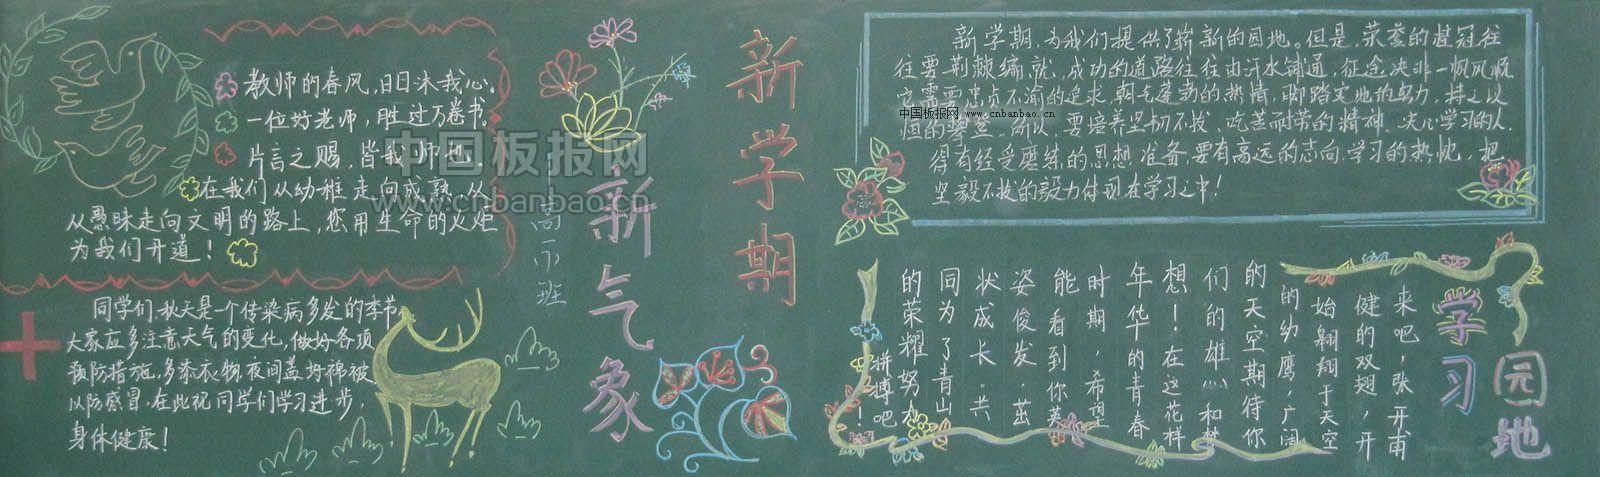 教师的春风,日日沐我心。
一位好老师,胜过万卷书。
片言之赐,皆我师也.
在我们从幼稚走向成熟,从
从愚昧走向文明的路上,您用生命的火炬
为我们开道!
同学们.秋天是个传染病多发的季节
大家应多注意天气的变化,做好各项
预防措施,多添衣物.夜间盖好棉被
以防感冒,在此祝同学们学习进步,
身体健康!
新学期
新气象
高一(7)班
新学期,为我们提供了崭新的园地。但是,荣誉的桂冠往
往要荆棘编就,成功的道路往往由汗水铺通,征途决非一帆风顺
它需要忠贞不渝的追求,朝气蓬勃的热情,脚踏实地的努力,持之以
恒的 所以,要培养坚韧不拔、吃苦耐劳的精神、决心学习的人.
得有经受磨练的思想准备,要有高远的志向,学习的热忱,把
坚毅不拔的毅力体现在学习之中!
学习
园地
来吧,张开南
健的双翅,开
始翱翔于天空
的幼鹰,广阔
的天空期待你
们的雄心和梦
想!在这花样
年华的青春
时期,希望
能看到你英
姿俊发.茁
状成长.共
同为了青山
的荣耀努力
拼搏吧!
中国板报网
www.cnbanbao.cn
中国板报网 www.cnbanbao.cn